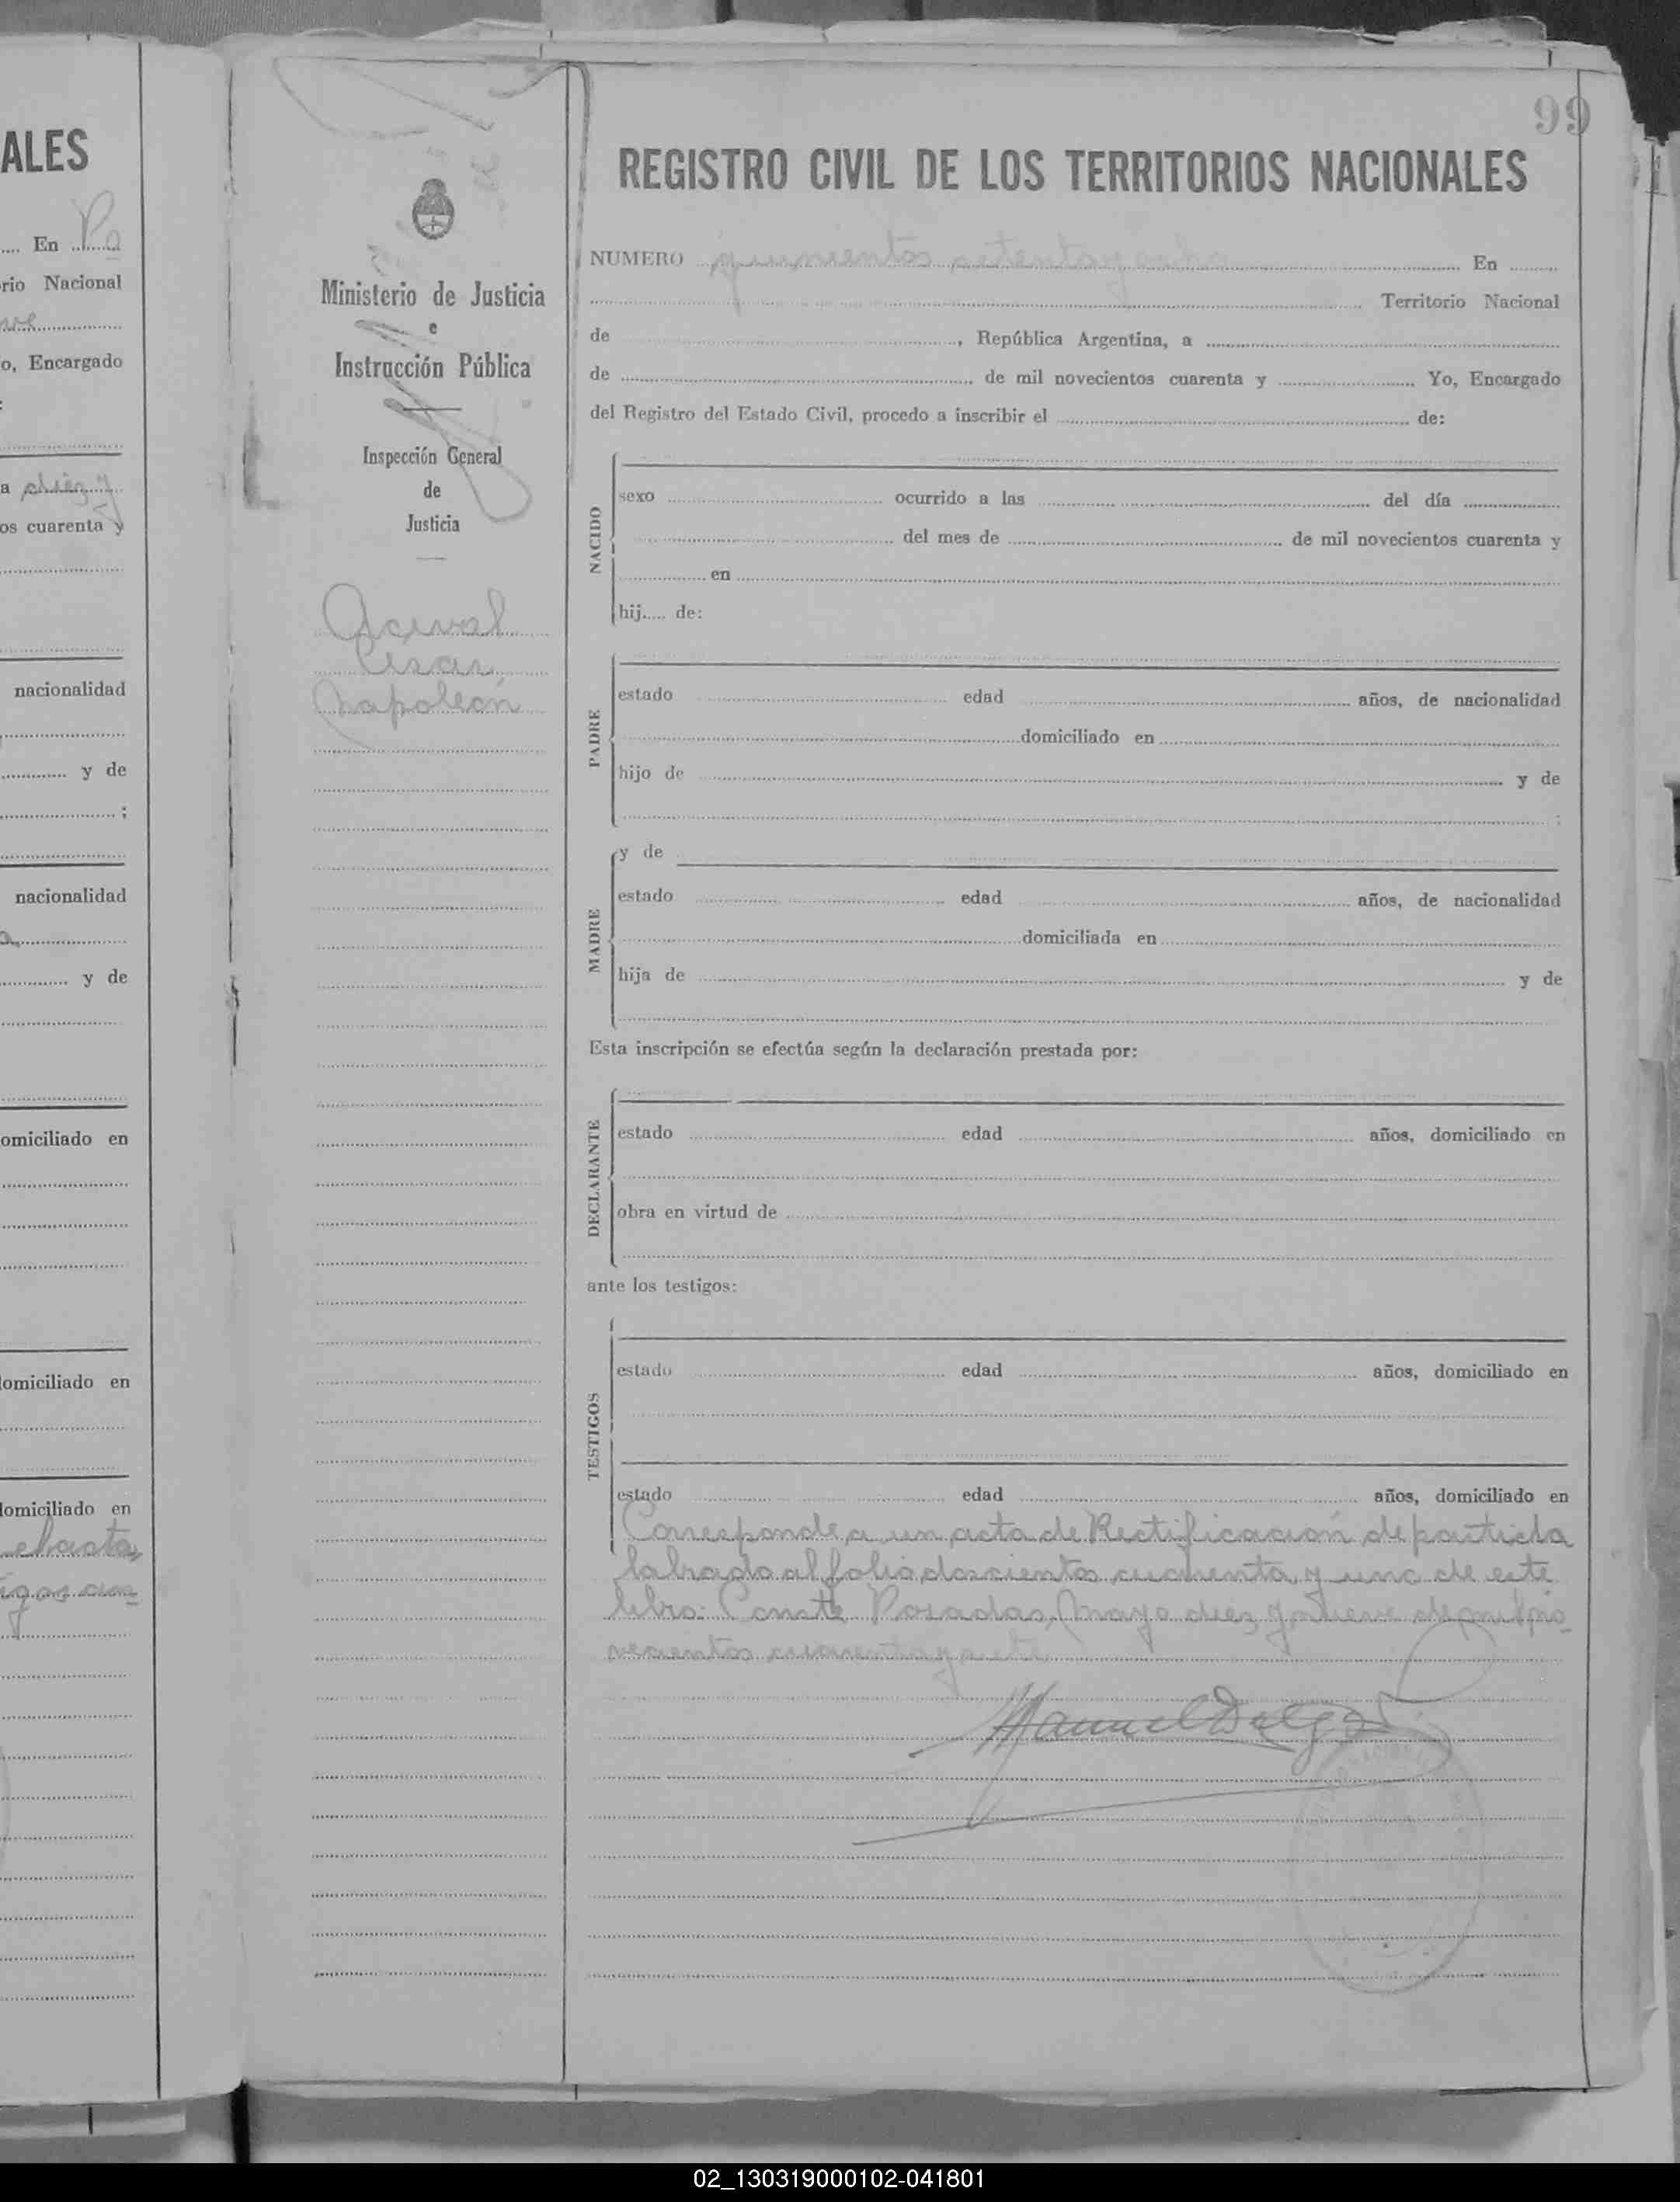 ALES
En Po
rio Nacional
o, Encargado
a diez y
os cuarenta y
nacionalidad
y de
;
nacionalidad
y de
omiciliado en
omiciliado en
domiciliado en
99
Ministerio de Justicia
e
Instrucción Pública
Inspección General
de
Justicia
Aceval
Cesar
Napoleón
REGISTRO CIVIL DE LOS TERRITORIOS NACIONALES
NUMERO quinientos setenta y ocho En
Territorio Nacional
de , República Argentina, a
de de mil novecientos cuarenta y Yo, Encargado
del Registro del Estado Civil, procedo a inscribir el de:
NACIDO
sexo ocurrido a las del día
del mes de de mil novecientos cuarenta y
en
hij.... de:
PADRE
estado edad años, de nacionalidad
domiciliado en
hijo de y de
;
MADRE
y de
estado edad años, de nacionalidad
domiciliada en
hija de y de
Esta inscripción se efectúa según la declaración prestada por:
DECLARANTE
estado edad años, domiciliado en
obra en virtud de
ante los testigos:
TESTIGOS
estado edad años, domiciliado en
estado edad años, domiciliado en
Corresponde a un acta de Rectificación de partida
labrado al folio doscientos cuarenta y uno de este
libro: Conste Posadas, Mayo diez y nueve de mil no-
vecientos cuarenta y siete
02_130319000102-041801